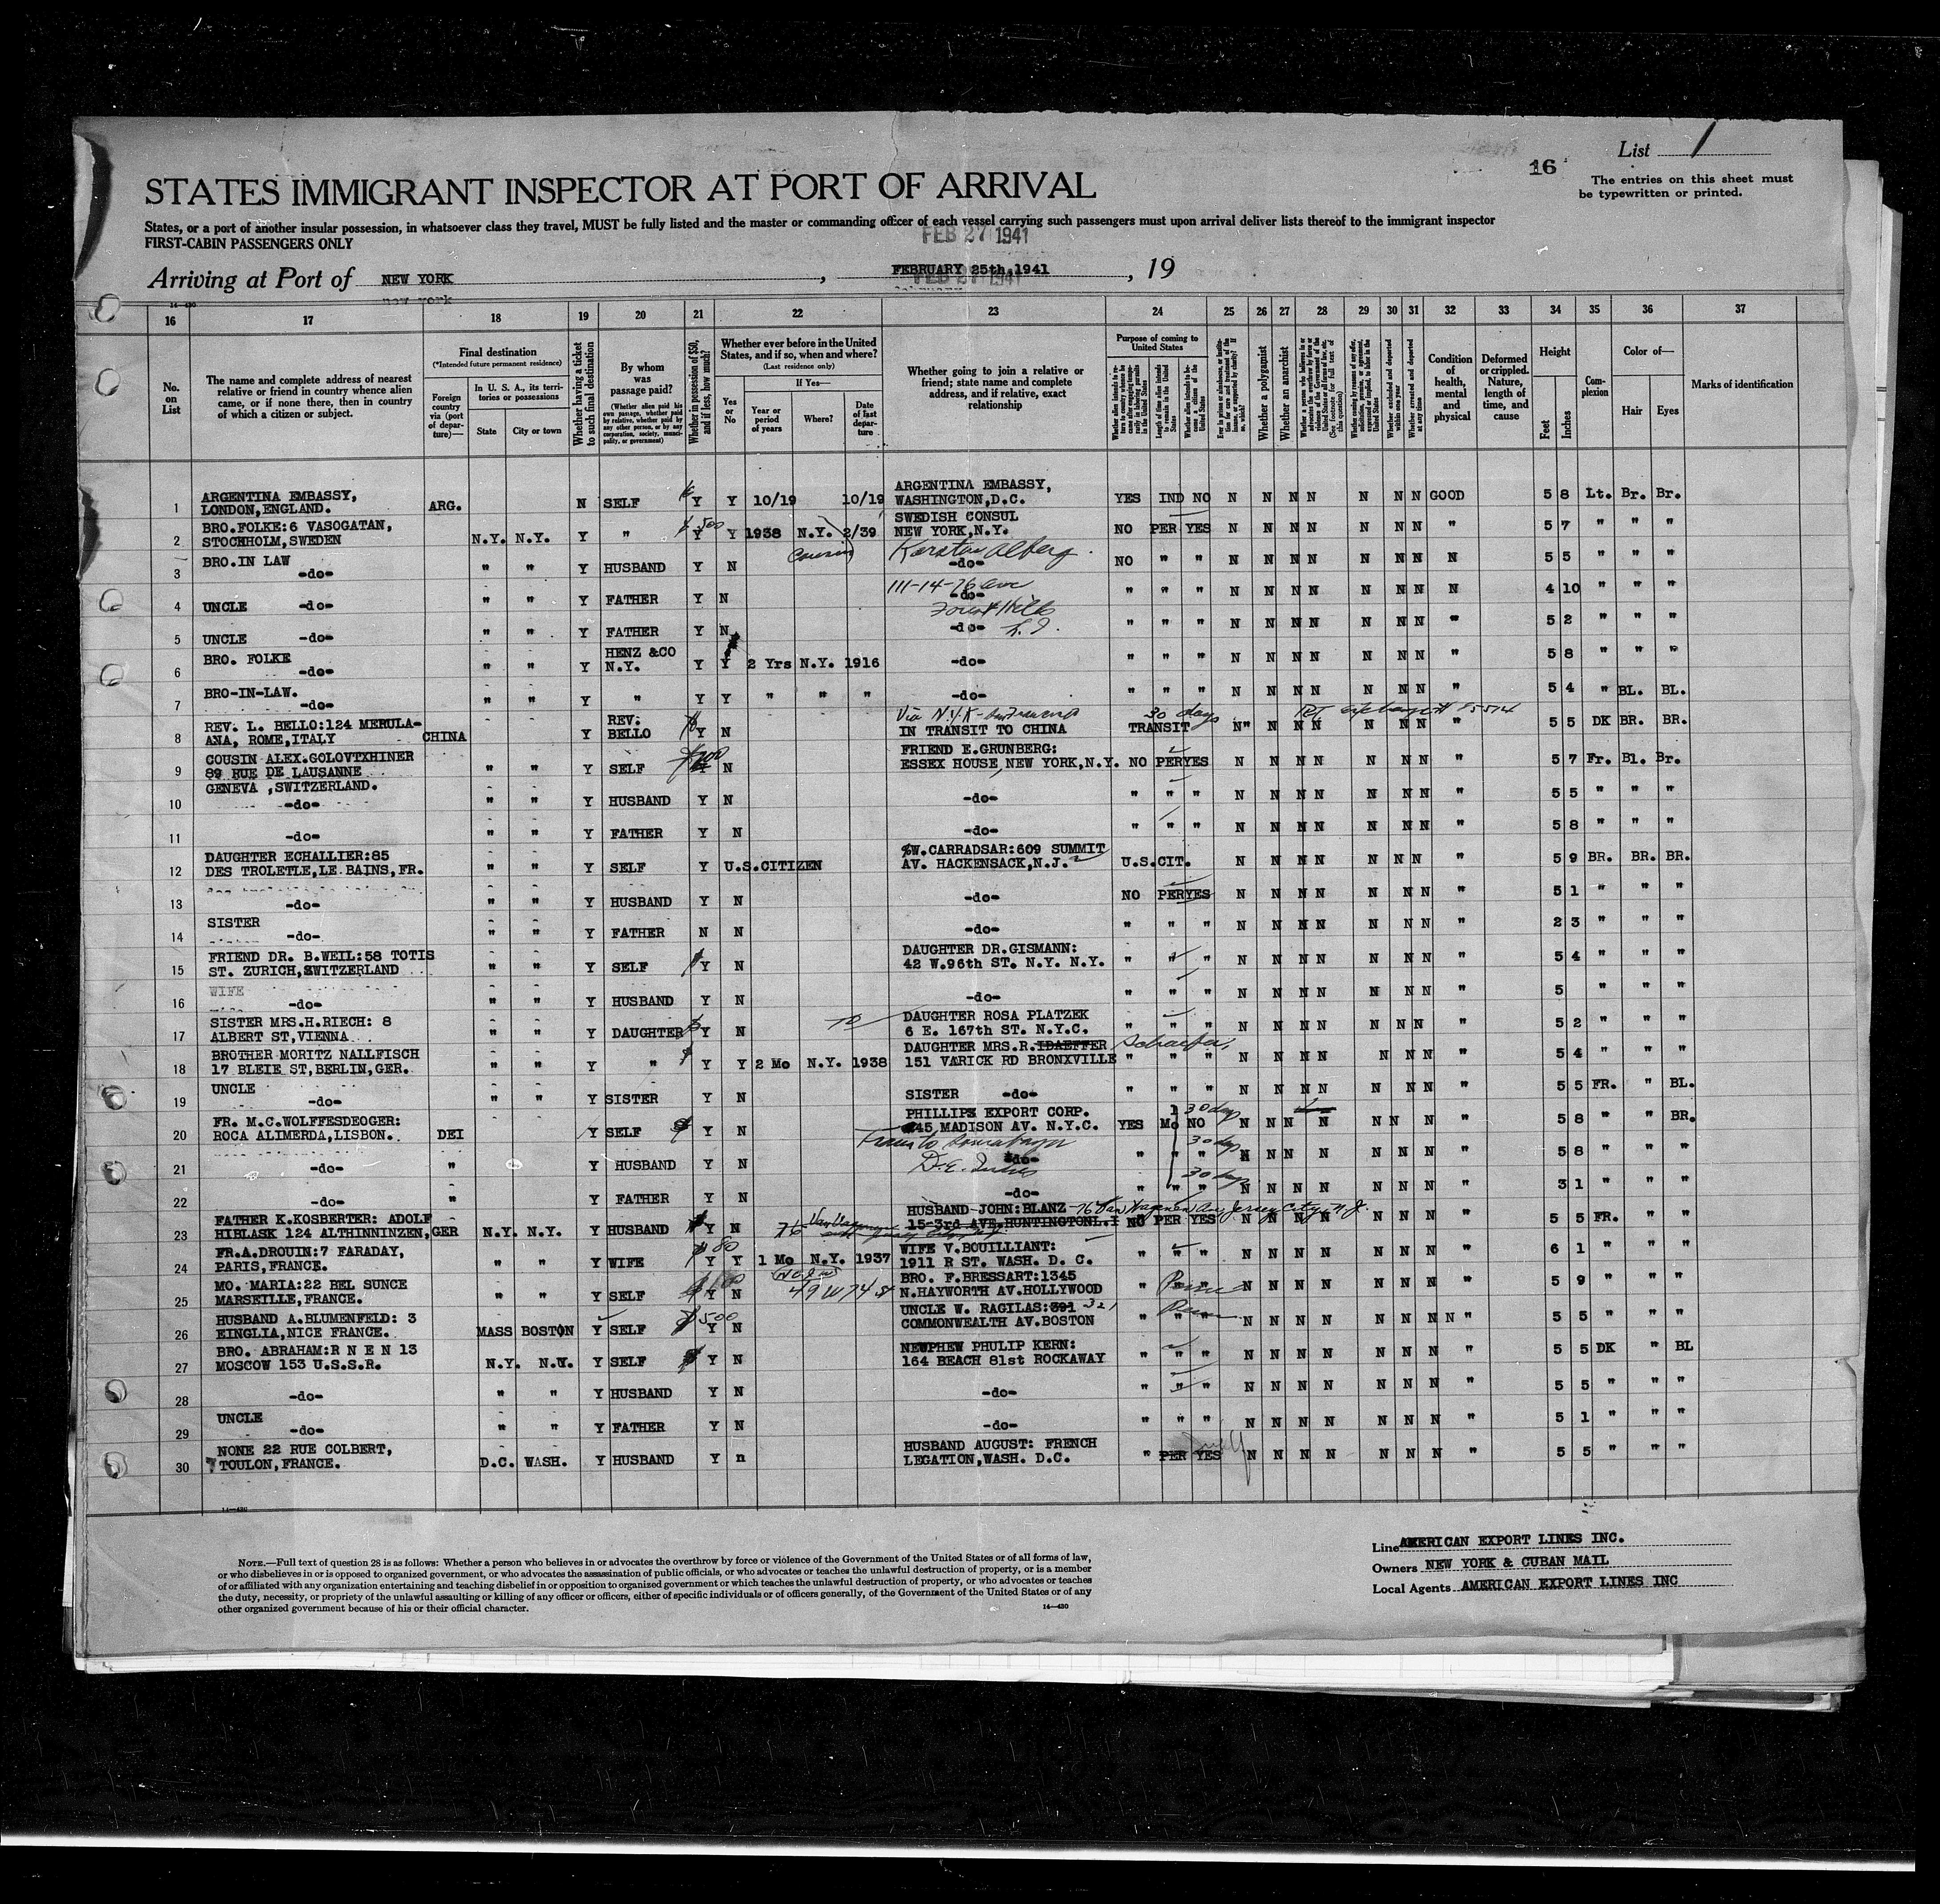 List 1
16
The entries on this sheet must
be typewritten or printed.
STATES IMMIGRANT INSPECTOR AT PORT OF ARRIVAL
States, or a port of another insular possession, in whatsoever class they travel, MUST be fully listed and the master or commanding officer of each vessel carrying such passengers must upon arrival deliver lists thereof to the immigrant inspector
FIRST-CABIN PASSENGERS ONLY
FEB 27 1941
Arriving at Port of NEW YORK , FEBRUARY 25th, 1941 , 19
new york FEB 27 1941
14—430
16 17 18 19 20 21 22 23 24 25 26 27 28 29 30 31 32 33 34 35 36 37
No. on List
The name and complete address of nearest relative or friend in country whence alien came, or if none there, then in country of which a citizen or subject.
Final destination
(*Intended future permanent residence)
Foreign country via (port of departure)—
In U. S. A., its territories or possessions
State
City or town
Whether having a ticket to such final destination
By whom was passage paid?
(Whether alien paid his own passage, whether paid by relative, whether paid by any other person, or by any corporation, society, municipality, or government)
Whether in possession of $50, and if less, how much?
Whether ever before in the United States, and if so, when and where?
(Last residence only)
Yes or No
If Yes—
Year or period of years
Where?
Date of last departure
Whether going to join a relative or friend; state name and complete address, and if relative, exact relationship
Purpose of coming to United States
Length of time alien intends to remain in the United States
Whether a polygamist
Whether an anarchist
Condition of health, mental and physical
Deformed or crippled. Nature, length of time, and cause
Height
Feet
Inches
Complexion
Color of—
Hair
Eyes
Marks of identification
1 ARGENTINA EMBASSY, LONDON, ENGLAND. ARG. N SELF Y Y 10/19 10/19 ARGENTINA EMBASSY, WASHINGTON, D.C. YES IND NO N N N N N N N GOOD 5 8 Lt. Br. Br.
2 BRO.FOLKE:6 VASOGATAN, STOCKHOLM, SWEDEN N.Y. N.Y. Y " $ 500 Y Y 1938 N.Y. 2/39 SWEDISH CONSUL NEW YORK, N.Y. NO PER YES N N N N N N N " 5 7 " " "
3 BRO.IN LAW -do- " " Y HUSBAND Y N cousin Karstan Alberg -do- NO " " N N N N N N N N 5 5 " " "
4 UNCLE -do- " " Y FATHER Y N 111-14-76 ave -do- " " " N N N N N N N N 4 10 " " "
Forest Hills
5 UNCLE -do- " " Y FATHER Y N -do- L.I. " " " N N N N N N N " 5 2 " " "
6 BRO. FOLKE -do- " " Y HENZ &CO N.Y. Y Y 2 Yrs N.Y. 1916 -do- " " " N N N N N N N " 5 8 " " "
7 BRO-IN-LAW. -do- " " Y " Y Y " " " -do- " " " N N N N N N N " 5 4 " BL. BL.
8 REV. L. BELLO:124 MERULA-ANA, ROME, ITALY CHINA Y REV. BELLO Y N IN TRANSIT TO CHINA 30 days TRANSIT N" N N N N N N " 5 5 DK BR. BR.
9 COUSIN ALEX.GOLOVTXHINER 89 RUE DE LAUSANNE GENEVA ,SWITZERLAND. " " Y SELF Y N FRIEND E.GRUNBERG: ESSEX HOUSE, NEW YORK, N.Y. NO PER YES N N N N N N N " 5 7 Fr. Bl. Br.
10 -do- " " Y HUSBAND Y N -do- " " " N N N N N N N " 5 5 " " "
11 -do- " " Y FATHER Y N -do- " " " N N N N N N N " 5 8 " " "
12 DAUGHTER ECHALLIER:85 DES TROLETLE, LE BAINS, FR. " " Y SELF Y U.S.CITIZEN %W.CARRADSAR:609 SUMMIT AV. HACKENSACK, N.J. U.S.CIT. N N N N N N N " 5 9 BR. BR. BR.
13 -do- " " Y HUSBAND Y N -do- NO PER YES N N N N N N N " 5 1 " " "
14 SISTER -do- " " Y FATHER N N -do- " " " N N N N N N N " 2 3 " " "
15 FRIEND DR. B.WEIL:58 TOTIS ST. ZURICH, SWITZERLAND " " Y SELF Y N DAUGHTER DR.GISMANN: 42 W.96th ST. N.Y. N.Y. " " " N N N N N N N " 5 4 " " "
16 WIFE -do- " " Y HUSBAND Y N -do- " " " N N N N N N N " 5 " " "
17 SISTER MRS.H.RIECH: 8 ALBERT ST, VIENNA " " Y DAUGHTER Y N DAUGHTER ROSA PLATZEK 6 E. 167th ST. N.Y.C. " " " N N N N N N N " 5 2 " " "
18 BROTHER MORITZ NALLFISCH 17 BLEIE ST, BERLIN, GER. " " Y " Y Y 2 Mo N.Y. 1938 DAUGHTER MRS.R.IDAEFFER Schaefer 151 VARICK RD BRONXVILLE " " " N N N N N N N " 5 4 " " "
19 UNCLE -do- " " Y SISTER Y N SISTER -do- " " " N N N N N N N " 5 5 FR. " BL.
20 FR. M.C.WOLFFESDEOGER: ROCA ALIMERDA, LISBON. DEI Y SELF Y N PHILLIPS EXPORT CORP. 145 MADISON AV. N.Y.C. YES 1 Mo NO 30 days N N N N N N " 5 8 " " BR.
21 -do- " Y HUSBAND Y N -do- " " " 30 days N N N N N N N " 5 8 " " "
22 -do- " Y FATHER Y N -do- " " " 30 days N N N N N N N " 3 1 " " "
23 FATHER K.KOSBERTER: ADOLF HIBLASK 124 ALTHINNINZEN, GER N.Y. N.Y. Y HUSBAND Y N HUSBAND JOHN:BLANZ 76 Van Wagenen Av. Jersey City, N.J. 15-3rd AVE.HUNTINGTONL.I NO PER YES N N N N N N N " 5 5 FR. " "
24 FR.A.DROUIN:7 FARADAY, PARIS, FRANCE. " " Y WIFE $ 80 Y Y 1 Mo N.Y. 1937 WIFE V.BOUILLIANT: 1911 R ST. WASH. D. C. " " " N N N N N N N " 6 1 " " "
25 MO. MARIA:22 BEL SUNCE MARSEILLE, FRANCE. " " Y SELF Y N 49 W 74 st BRO. F.BRESSART:1345 N.HAYWORTH AV.HOLLYWOOD " " " N N N N N N N " 5 9 " " "
26 HUSBAND A.BLUMENFELD: 3 EINGLIA, NICE FRANCE. MASS BOSTON Y SELF $ 500 Y N UNCLE W. RAGILAS:391 321 COMMONWEALTH AV.BOSTON " " N N N N N N N N " 5 5 " " "
27 BRO. ABRAHAM:R N E N 13 MOSCOW 153 U.S.S.R. N.Y. N.Y. Y SELF Y N NEWPHEW PHULIP KERN: 164 BEACH 81st ROCKAWAY " " " N N N N N N N " 5 5 DK " BL
28 -do- " " Y HUSBAND Y N -do- " " " N N N N N N N " 5 5 " " "
29 UNCLE -do- " " Y FATHER Y N -do- " " " N N N N N N N " 5 1 " " "
30 NONE 22 RUE COLBERT, TOULON, FRANCE. D.C. WASH. Y HUSBAND Y n HUSBAND AUGUST: FRENCH LEGATION, WASH. D.C. " PER YES N N N N N N N " 5 5 " " "
14—430
NOTE.—Full text of question 28 is as follows: Whether a person who believes in or advocates the overthrow by force or violence of the Government of the United States or of all forms of law,
or who disbelieves in or is opposed to organized government, or who advocates the assassination of public officials, or who advocates or teaches the unlawful destruction of property, or is a member
of or affiliated with any organization entertaining and teaching disbelief in or opposition to organized government or which teaches the unlawful destruction of property, or who advocates or teaches
the duty, necessity, or propriety of the unlawful assaulting or killing of any officer or officers, either of specific individuals or of officers generally, of the Government of the United States or of any
other organized government because of his or their official character.
14—430
Line AMERICAN EXPORT LINES INC.
Owners NEW YORK & CUBAN MAIL
Local Agents AMERICAN EXPORT LINES INC